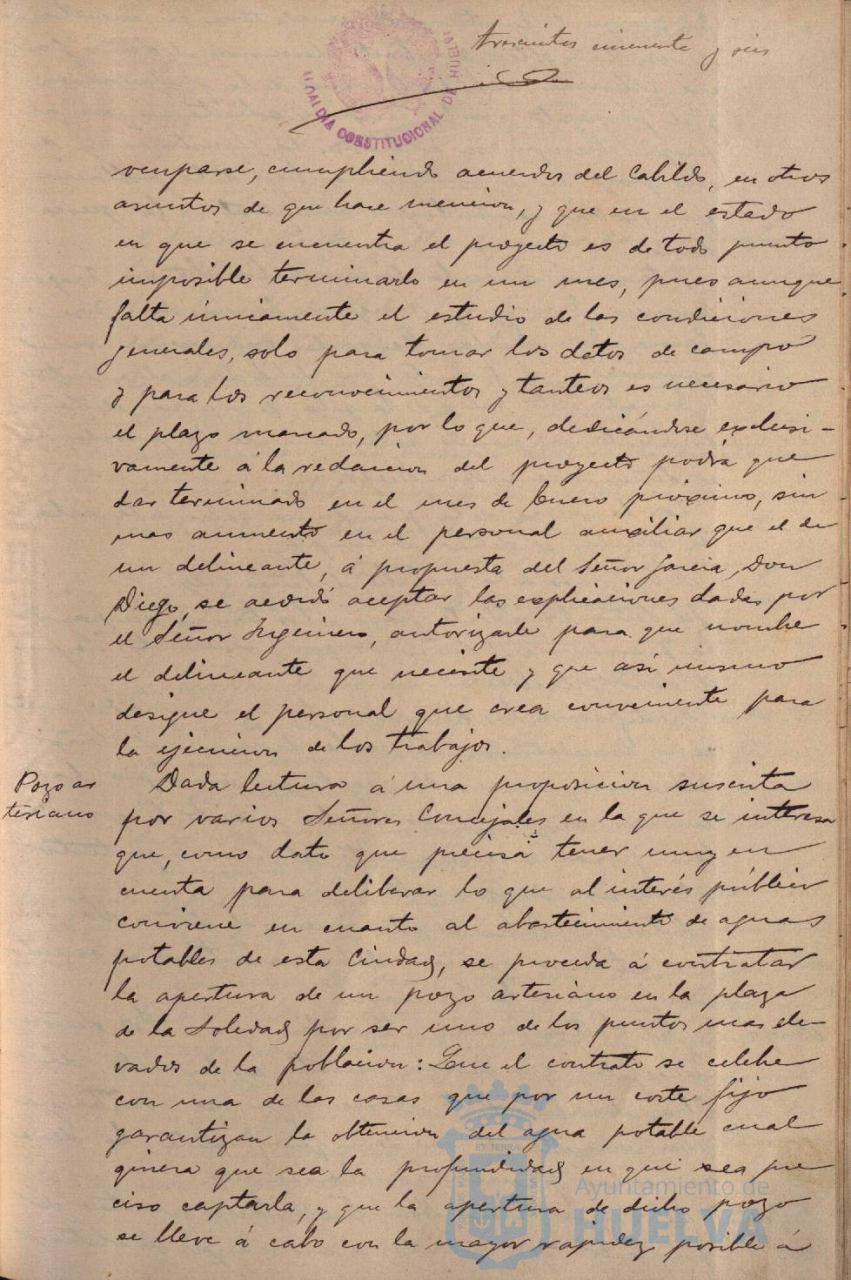 trescientos cincuenta y seis
ALCALDIA CONSTITUCIONAL DE HUELVA
ocuparse, cumpliendo acuerdos del Cabildo, en otros
asuntos de que hace mencion, y que en el estado
en que se encuentra el proyecto es de todo punto
imposible terminarlo en un mes, pues aunque
falta únicamente el estudio de las condiciones
generales, solo para tomar los datos de campo
y para los reconocimientos y tanteos es necesario
el plazo marcado, por lo que, dedicándose exclusi-
vamente á la redaccion del proyecto podrá que
dar terminado en el mes de Enero próximo, sin
mas aumento en el personal auxiliar que el de
un delineante, á propuesta del Señor Garcia, Don
Diego, se acordó aceptar las esplicaciones dadas por
el Señor Ingeniero, autorizarle para que nombre
el delineante que necesite y que asi mismo
designe el personal que crea conveniente para
la ejecucion de los trabajos.
Pozo ar
tesiano
Dada lectura á una proposicion suscrita
por varios Señores Concejales en la que se interesa
que, como dato que precisa tener muy en
cuenta para deliberar lo que al interés público
conviene en cuanto al abastecimiento de aguas
potables de esta Ciudad, se proceda á contratar
la apertura de un pozo artesiano en la plaza
de la Soledad por ser uno de los puntos mas ele-
vados de la poblacion: Que el contrato se celebre
con una de las casas que por un coste fijo
garantizan la obtencion del agua potable cual
quiera que sea la profundidad en que sea pre
ciso captarla, y que la apertura de dicho pozo
se lleve á cabo con la mayor rapidez posible á
Ayuntamiento de
HUELVA